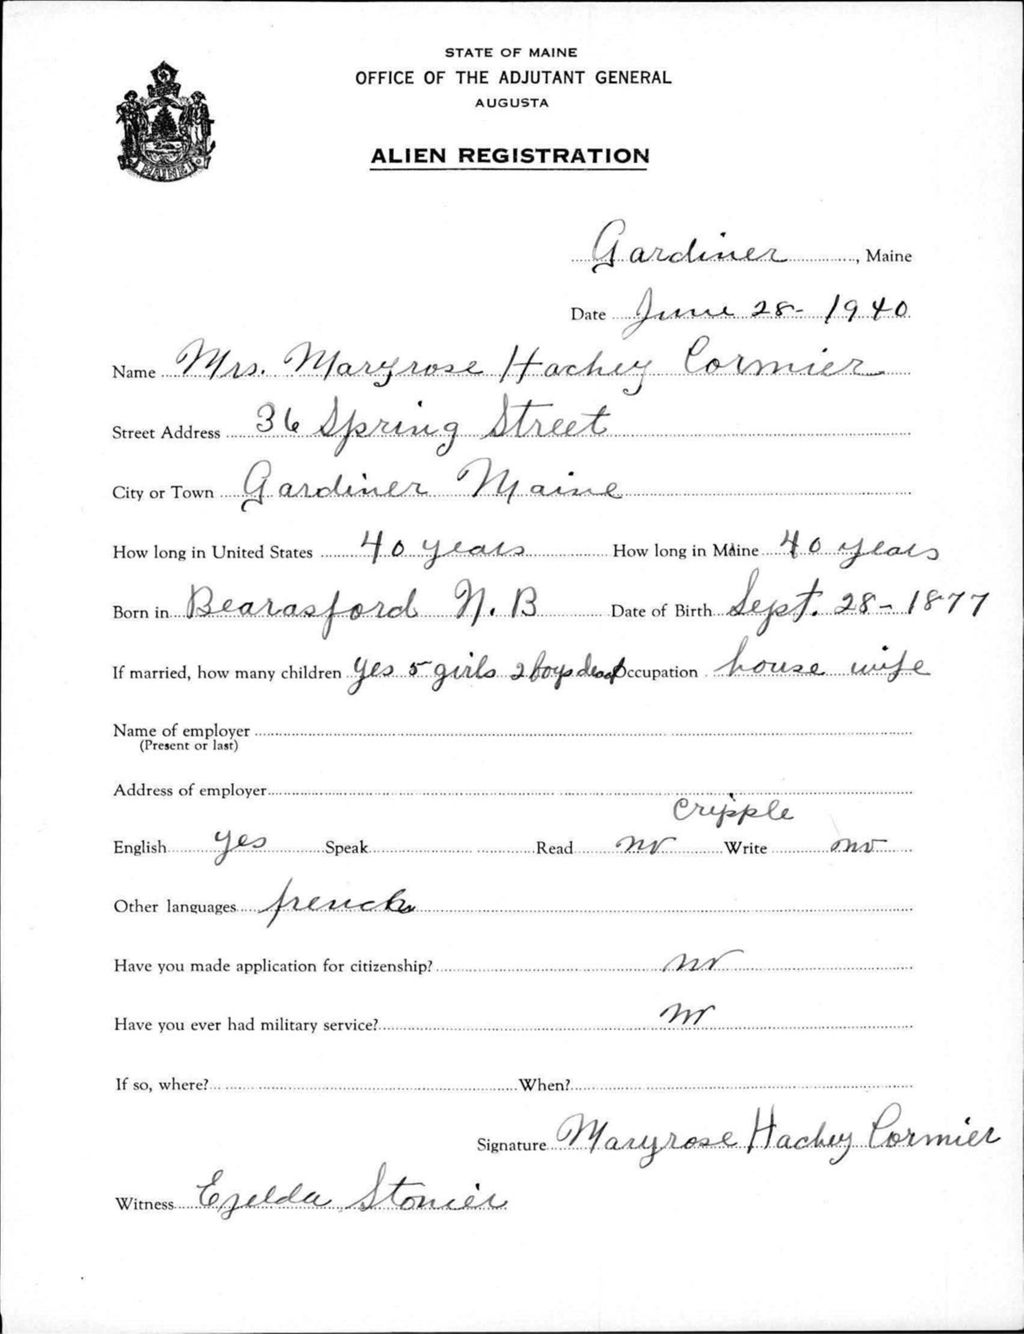 STATE OF MAINE
OFFICE OF THE ADJUTANT GENERAL
AUGUSTA
ALIEN REGISTRATION
MAINE
Gardiner, Maine
Date June 28- 1940
Name Mrs. Maryrose Hachey Cormier
Street Address 36 Spring Street
City or Town Gardiner Maine
How long in United States 40 years How long in Maine 40 years
Born in Bearasford N.B Date of Birth Sept. 28-1877
If married, how many children Yes 5 girls 2 boys dead Occupation house wife
Name of employer
(Present or last)
Address of employer
Cripple
English yes Speak Read no Write no
Other languages french
Have you made application for citizenship? no
Have you ever had military service? no
If so, where? When?
Signature Maryrose Hachey Cormier
Witness Ezelda Stonier